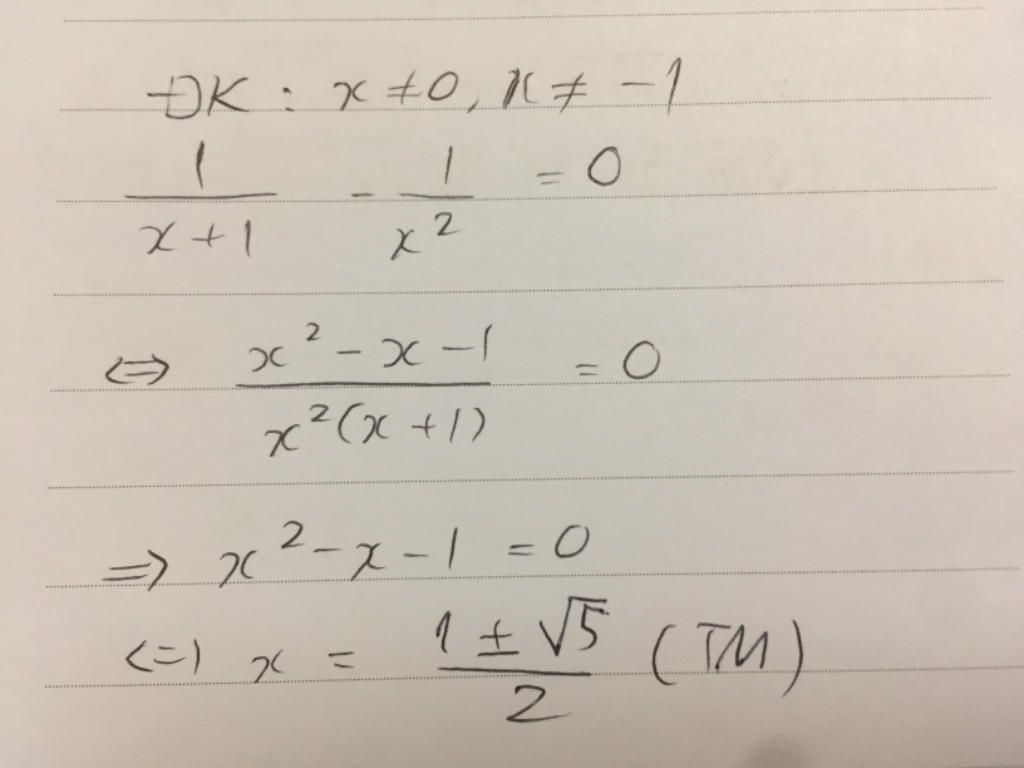 ĐK : x ≠ 0, x ≠ -1
1/(x+1) - 1/x² = 0
⇔ (x² - x - 1)/(x²(x+1)) = 0
⇒ x² - x - 1 = 0
⇔ x = (1 ± √5)/2 (TM)